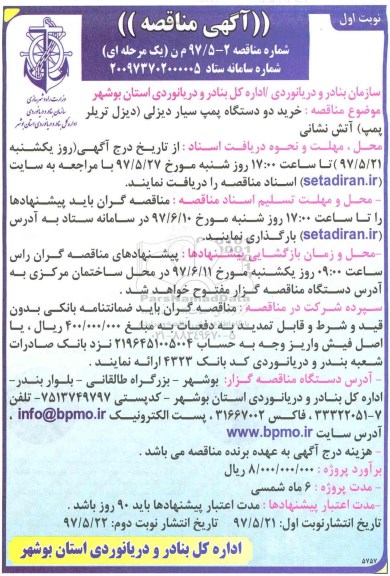 نوبت اول
((آگهی مناقصه ))
شماره مناقصه ۲-۹۷/۵ م ن (یک مرحله ای)
شماره سامانه ستاد ۲۰۰۹۷۳۷۰۲۰۰۰۰۰۵
وزارت راه و شهرسازی
سازمان بنادر و دریانوردی
اداره کل بنادر و دریانوردی استان بوشهر
سازمان بنادر و دریانوردی /اداره کل بنادر و دریانوردی استان بوشهر
موضوع مناقصه : خرید دو دستگاه پمپ سیار دیزلی (دیزل تریلر
پمپ) آتش نشانی
محل ، مهلت و نحوه دریافت اسناد : از تاریخ درج آگهی(روز یکشنبه
۹۷/۵/۲۱) تا ساعت ۱۷:۰۰ روز شنبه مورخ ۹۷/۵/۲۷ با مراجعه به سایت
(setadiran.ir) اسناد مناقصه را دریافت نمایند.
- محل و مهلت تسلیم اسناد مناقصه : مناقصه گران باید پیشنهادها
را تا ساعت ۱۷:۰۰ روز شنبه مورخ ۹۷/۶/۱۰ در سامانه ستاد به آدرس
(setadiran.ir) بارگذاری نمایند.
-محل و زمان بازگشایی پیشنهادها : پیشنهادهای مناقصه گران راس
ساعت ۰۹:۰۰ روز یکشنبه مورخ ۹۷/۶/۱۱ در محل ساختمان مرکزی به
آدرس دستگاه مناقصه گزار مفتوح خواهد شد .
سپرده شرکت در مناقصه : مناقصه گران باید ضمانتنامه بانکی بدون
قید و شرط و قابل تمدید به دفعات به مبلغ ۴۰۰/۰۰۰/۰۰۰ ریال ، یا
اصل فیش واریز وجه به حساب ۲۱۹۶۴۵۱۰۰۵۰۰۴ نزد بانک صادرات
شعبه بندر و دریانوردی کد بانک ۴۳۲۳ ارائه نمایند .
- آدرس دستگاه مناقصه گزار: بوشهر - بزرگراه طالقانی - بلوار بندر-
اداره کل بنادر و دریانوردی استان بوشهر - کدپستی ۷۵۱۳۷۴۹۷۹۷- تلفن
۷-۳۳۳۲۲۰۵۱ ، فاکس ۳۱۶۶۷۰۰۲ ، پست الکترونیک info@bpmo.ir ،
آدرس سایت www.bpmo.ir
- هزینه درج آگهی به عهده برنده مناقصه می باشد .
برآورد پروژه : ۸/۰۰۰/۰۰۰/۰۰۰ ریال
- مدت پروژه : ۶ ماه شمسی
-مدت اعتبار پیشنهادها : مدت اعتبار پیشنهادها باید ۹۰ روز باشد .
تاریخ انتشارنوبت اول: ۹۷/۵/۲۱ تاریخ انتشار نوبت دوم: ۹۷/۵/۲۲
اداره کل بنادر و دریانوردی استان بوشهر
۵۷۵۷